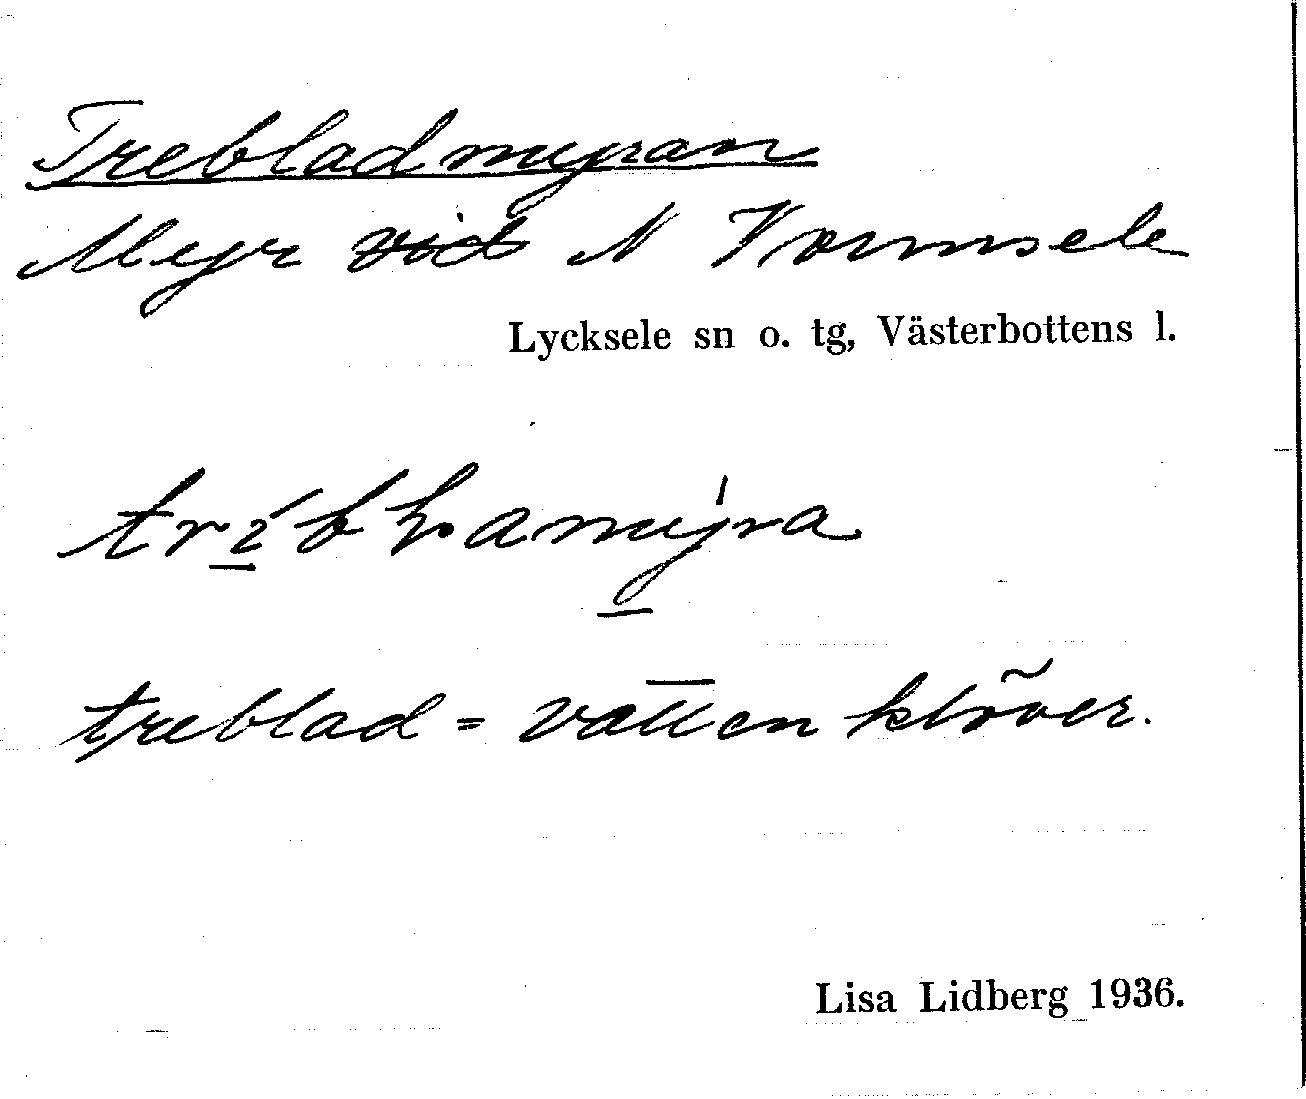 Trebladmyran
Myr vid N Vormsele
Lycksele sn o. tg, Västerbottens l.
treblad = vattenklöver.
Lisa Lidberg 1936.